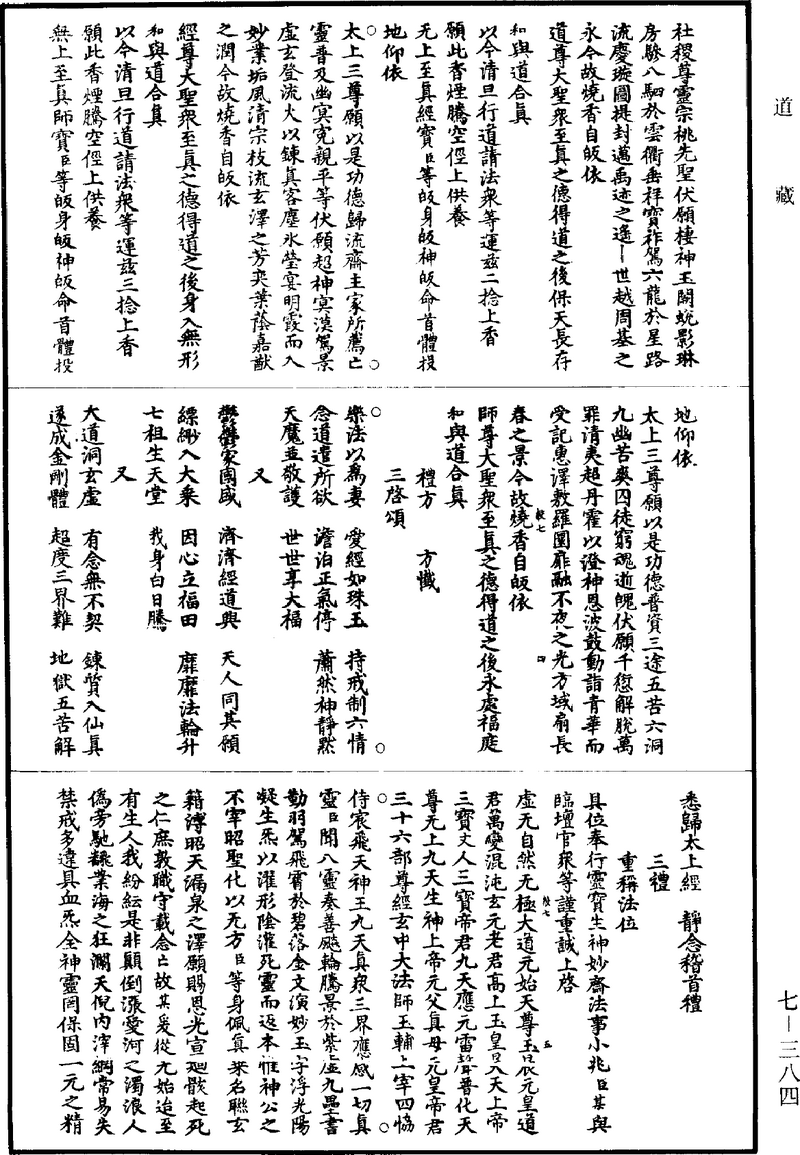 道藏
社稷尊靈宗祧先聖伏願棲神玉闕蛻影琳
房驂八駟於雲衢垂祥寶祚駕六龍於星路
流慶璇圖提封邁禹迹之遙世越周基之
永今故燒香自皈依
道尊大聖衆至真之德得道之後保天長存
和與道合真
以今清旦行道請法衆等運茲二捻上香
願此香煙騰空徑上供養
无上至真經寶臣等皈身皈神皈命首體投
地仰依
太上三尊願以是功德歸流齋主家所薦亡
靈普及幽冥冤親平等伏願超神冥漠駕景
虛玄登流火以鍊真客塵冰瑩宴明霞而入
妙業垢風清宗枝流玄澤之芳奕葉蔭嘉猷
之潤今故燒香自皈依
經尊大聖衆至真之德得道之後身入無形
和與道合真
以今清旦行道請法衆等運茲三捻上香
願此香煙騰空徑上供養
無上至真師寶臣等皈身皈神皈命首體投
地仰依
太上三尊願以是功德普資三途五苦六洞
九幽苦爽囚徒窮魂逝魄伏願千愆解脫萬
罪清夷超丹霍以澄神恩波鼓動詣青華而
受記惠澤敷羅圜扉融不夜之光方域扇長
春之景今故燒香自皈依
師尊大聖衆至真之德得道之後永處福庭
和與道合真
禮方 方懺
三啓頌
樂法以爲妻 愛經如珠玉 持戒制六情
念道遣所欲 澹泊正氣停 蕭然神靜默
天魔並敬護 世世享大福
又
鬱鬱家國盛 濟濟經道興 天人同其願
縹緲入大乘 因心立福田 靡靡法輪升
七祖生天堂 我身白日騰
又
大道洞玄虛 有念無不契 鍊質入仙真
遂成金剛體 超度三界難 地獄五苦解
悉歸太上經 靜念稽首禮
三禮
重稱法位
具位奉行靈寶生神妙齋法事小兆臣某與
臨壇官衆等謹重誠上啓
虛无自然无極大道元始天尊玉晨元皇道
君萬變混沌玄元老君高上玉皇昊天上帝
三寶丈人三寶帝君九天應元雷聲普化天
尊元上九天生神上帝元父真母元皇帝君
三十六部尊經玄中大法師玉輔上宰四協
侍宸飛天神王九天真衆三界應感一切真
靈臣聞八靈奏善飈輪騰景於紫虛九壘書
勤羽駕飛霄於碧落金文演妙玉字浮光陽
凝生炁以濯形陰灌死靈而返本惟神公之
不宰昭聖化以无方臣等身佩真乘名聯玄
籍溥昭天漏泉之澤願賜恩光宣廻骸起死
之仁庶敦職守載念亡故某爰從九始迨至
有生人我紛紜是非顛倒漲愛河之濁浪人
僞旁馳飜業海之狂瀾天倪內滓綱常易失
禁戒多違具血炁全神靈罔保固一元之精
七—三八四